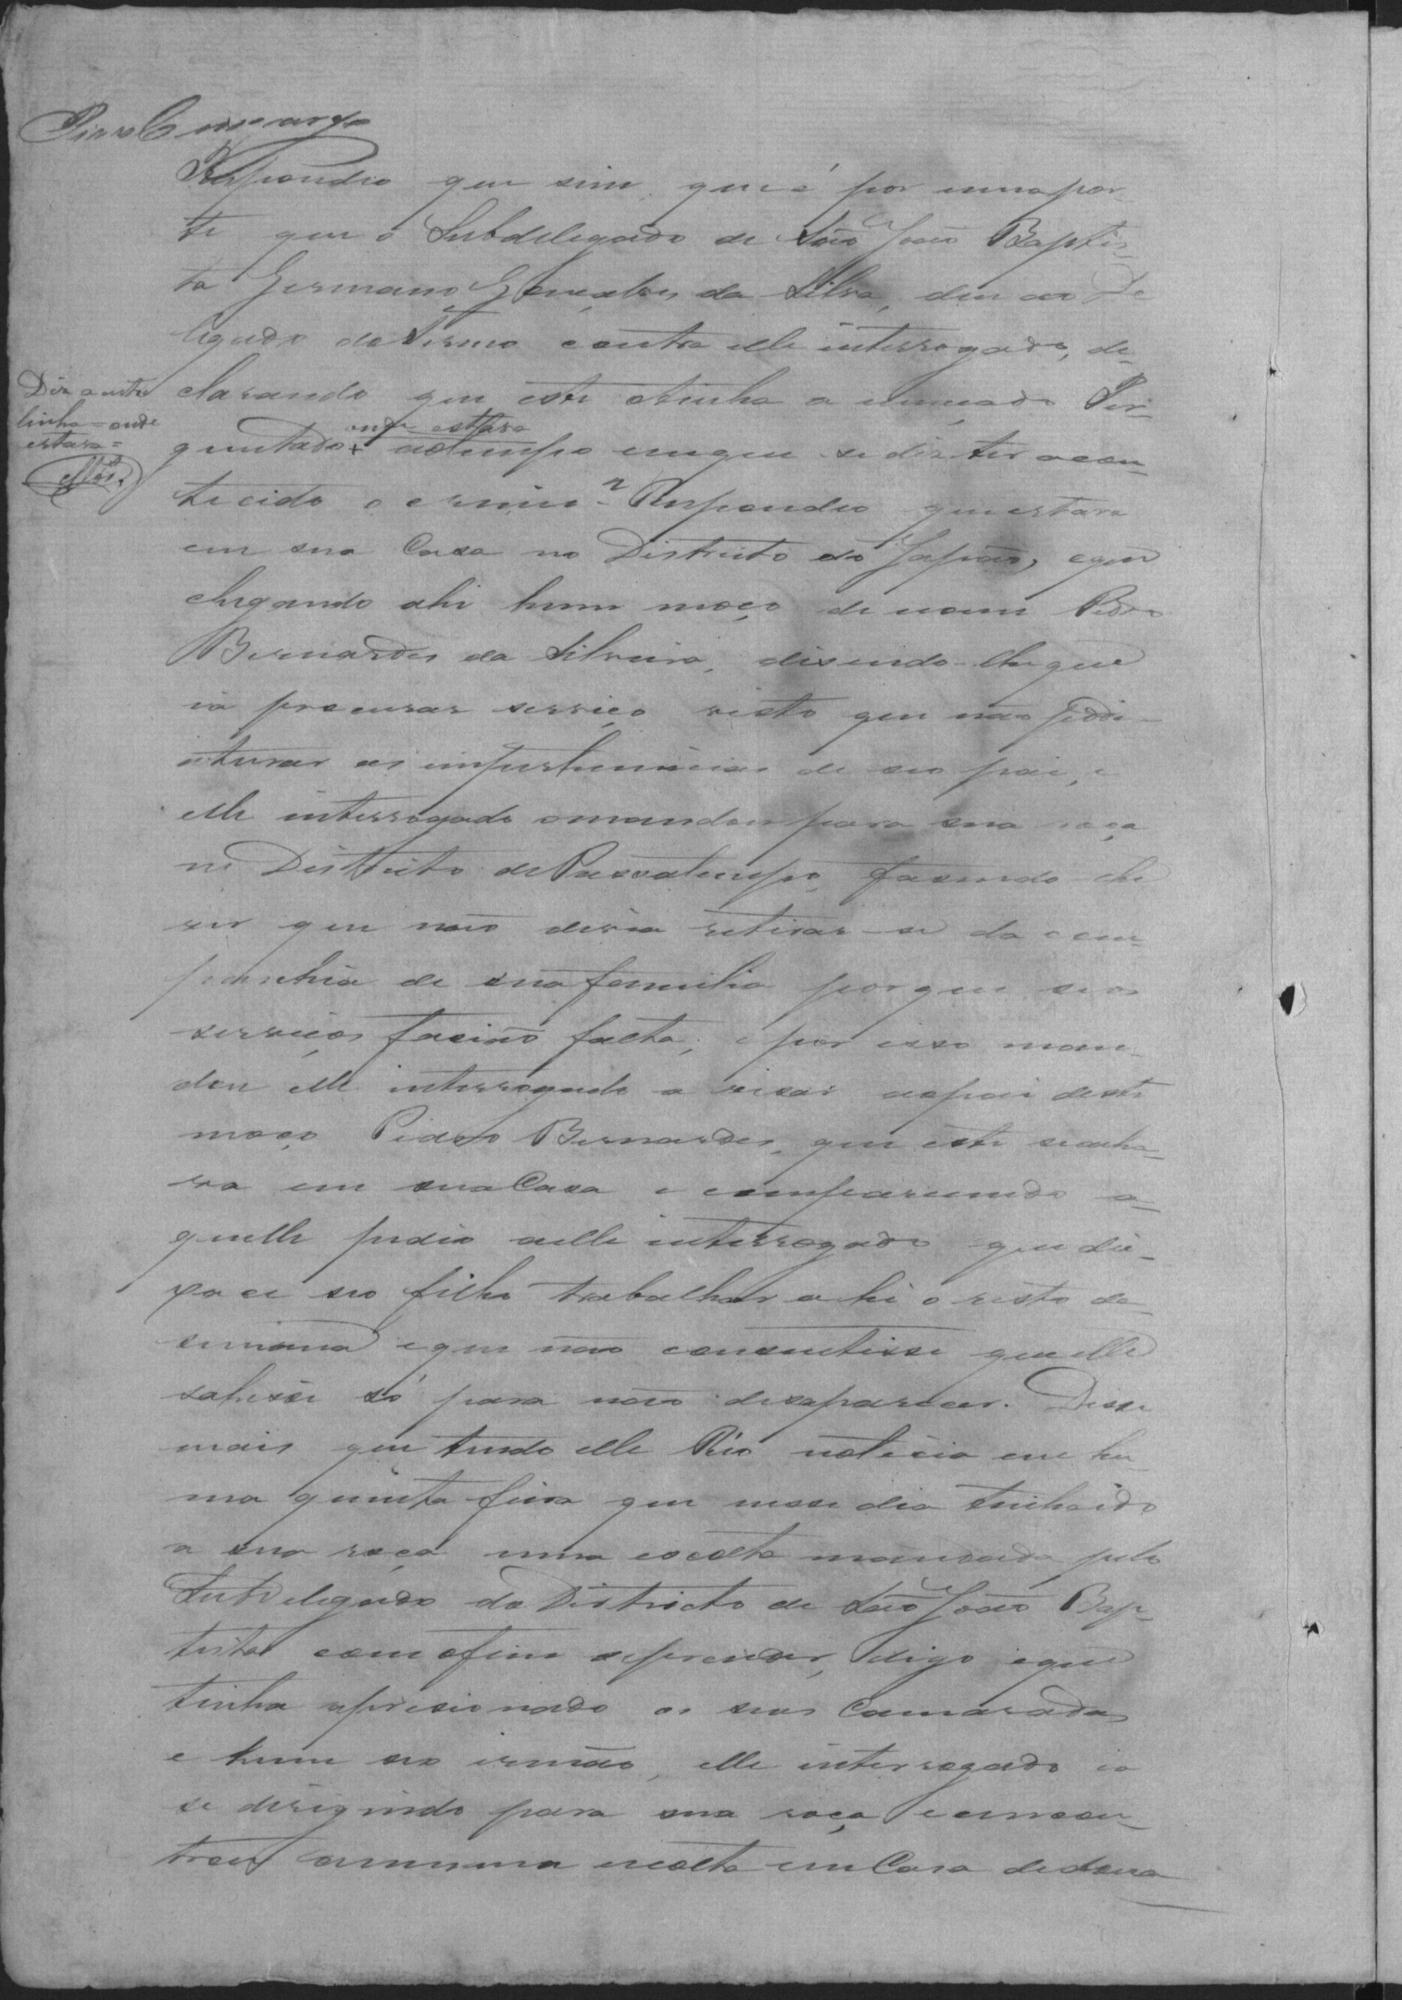 Respondeo que sim, que é por uma par-
te que o Subdelegado de São João Baptis-
ta Germano Gonçalves da Silva, deu ao De
legado do Termo contra elle interrogado, de-
clarando que este tinha a
Per-
Diz a entre
linha = onde
estava =
onde estava
guntado + ao tempo em que se diz ter acon-
tecido o crime? Respondeo que estava
em sua Casa no Districto do Japão, e que
chegando ahi hum moço de nome Pedro
Bernardes da Silveira, disendo-lhe que
ia procurar serviço visto que não podia
aturar as impertinencias de seo pai, e
elle interrogado o mandou para sua roça
no Districto de Passatempo, fasendo-lhe
ver que não devia retirar-se da com-
panhia de sua familia por que seos
serviços facião falta, e por isso man-
dou elle interrogado avisar ao pai deste
moço Pedro Bernardes, que este se acha-
va em sua Casa e comparecendo a-
quelle pedio a elle interrogado que dei-
xace seo filho trabalhar ahi o resto da
semana e que não consentisse que elle
sahisse só para não desaparecer. Disse
mais que tendo elle Réo noticia em hu-
ma quinta feira que nesse dia tinha ido
a sua roça uma escolta mandada pelo
Subdelegado do Districto de São João Bap-
tista com o fim de prender, digo e que
tinha aprisionado os seos Camaradas
e hum seo irmão, elle interrogado ia
se dirigindo para sua roça e encon-
trou com uma escolta em Casa de dona